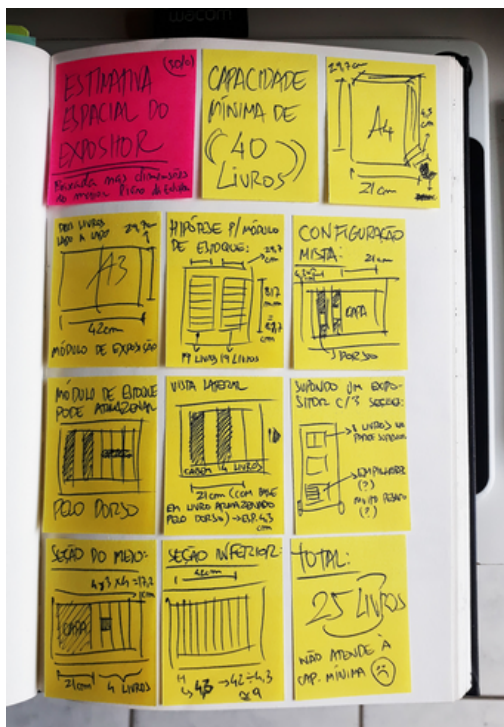 wacom
ESTIMATIVA
ESPACIAL DO
EXPOSITOR
CAPACIDADE
MÍNIMA DE
(40
LIVROS)
29,7
cm
A4
4,3
cm
21cm
DOIS LIVROS
LADO A LADO
29,7cm
A3
42cm
MÓDULO DE EXPOSIÇÃO
HIPÓTESE P/ MÓDULO
DE ESTOQUE:
29,7
cm
cm
19 LIVROS 19 LIVROS
CONFIGURAÇÃO
MISTA:
21cm
CAPA
DORSO
MÓDULO DE ESTOQUE
PODE ARMAZENAR
PELO DORSO
VISTA LATERAL
CABEM 4 LIVROS
21cm (COM BASE
EM LIVRO ARMAZENADO
PELO DORSO) → ESP. 4,3
cm
SUPONDO UM EXPO-
SITOR C/ 3 SEÇÕES:
EMPILHADOS
(?)
MUITO PESADO
(?)
SEÇÃO DO MEIO:
4,3 x 4 = 17,2
cm
CAPA
21cm
4 LIVROS
SEÇÃO INFERIOR:
42cm
4,3 → 42 ÷ 4,3
≅ 9
TOTAL:
25 LIVROS
NÃO ATENDE À
CAP. MÍNIMA